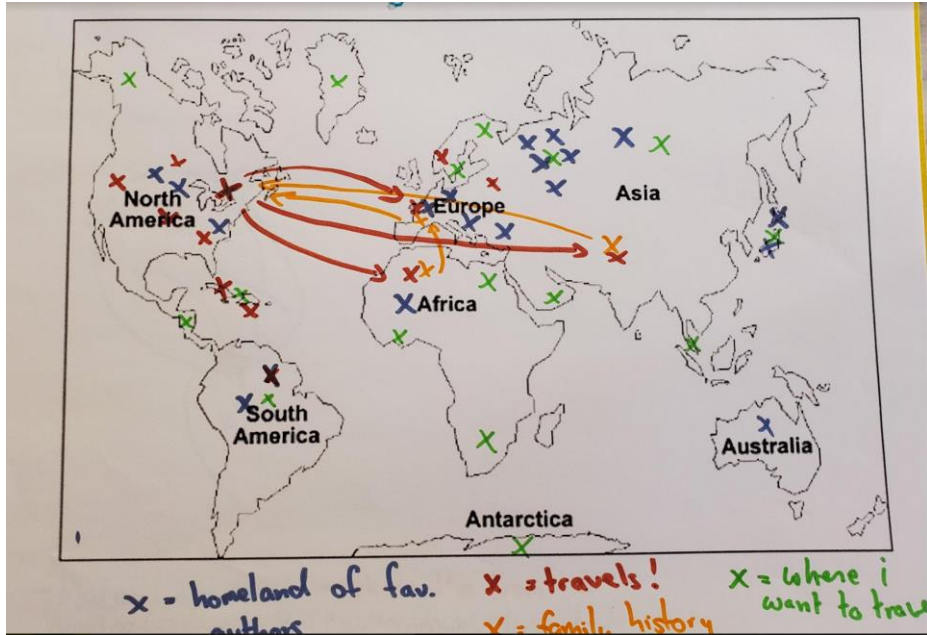 North
America
Europe
Asia
Africa
South
America
Australia
Antarctica
X = homeland of fav.
authors
X = travels!
X = family history
X = where i
want to trav